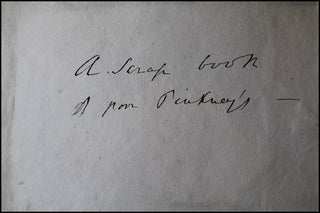 A Scrap book
of poor Pinkney's —